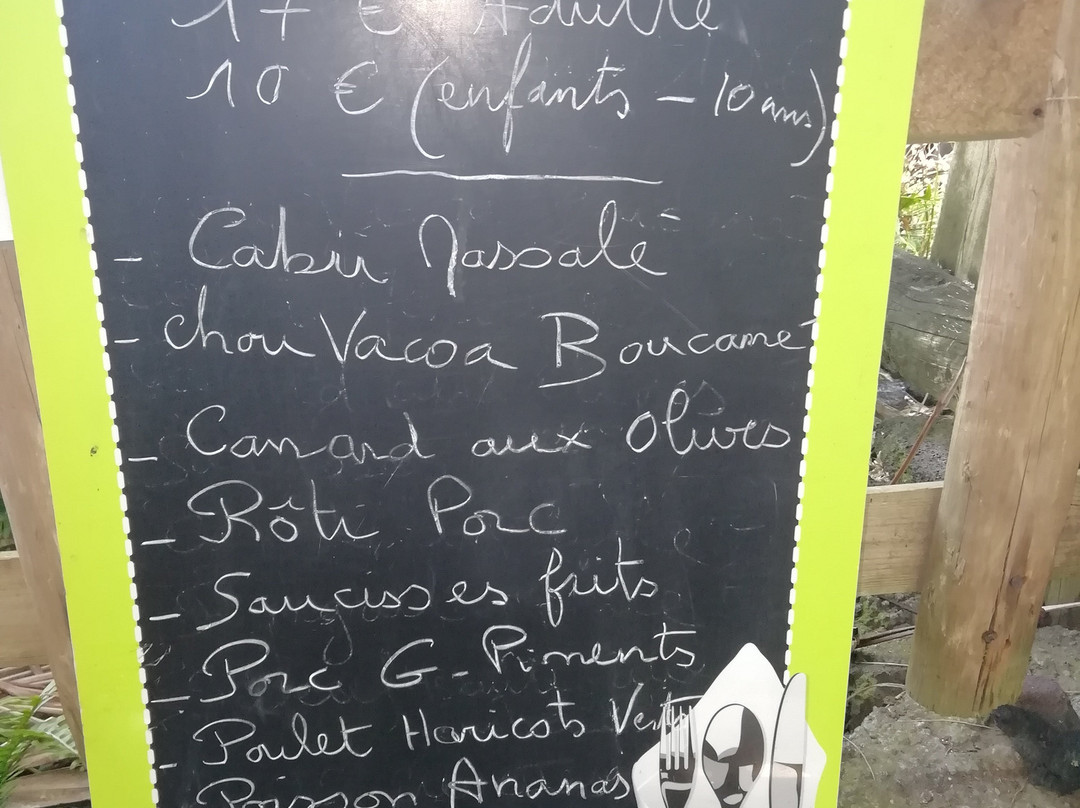 17 € Adulte
10 € (enfants - 10 ans)
- Cabri Massalé
- chou Vacoa Boucané
- Canard aux Olives
- Rôti Porc
- Saucisses frits
- Porc G-Piments
- Poulet Haricots Verts
Poisson Ananas